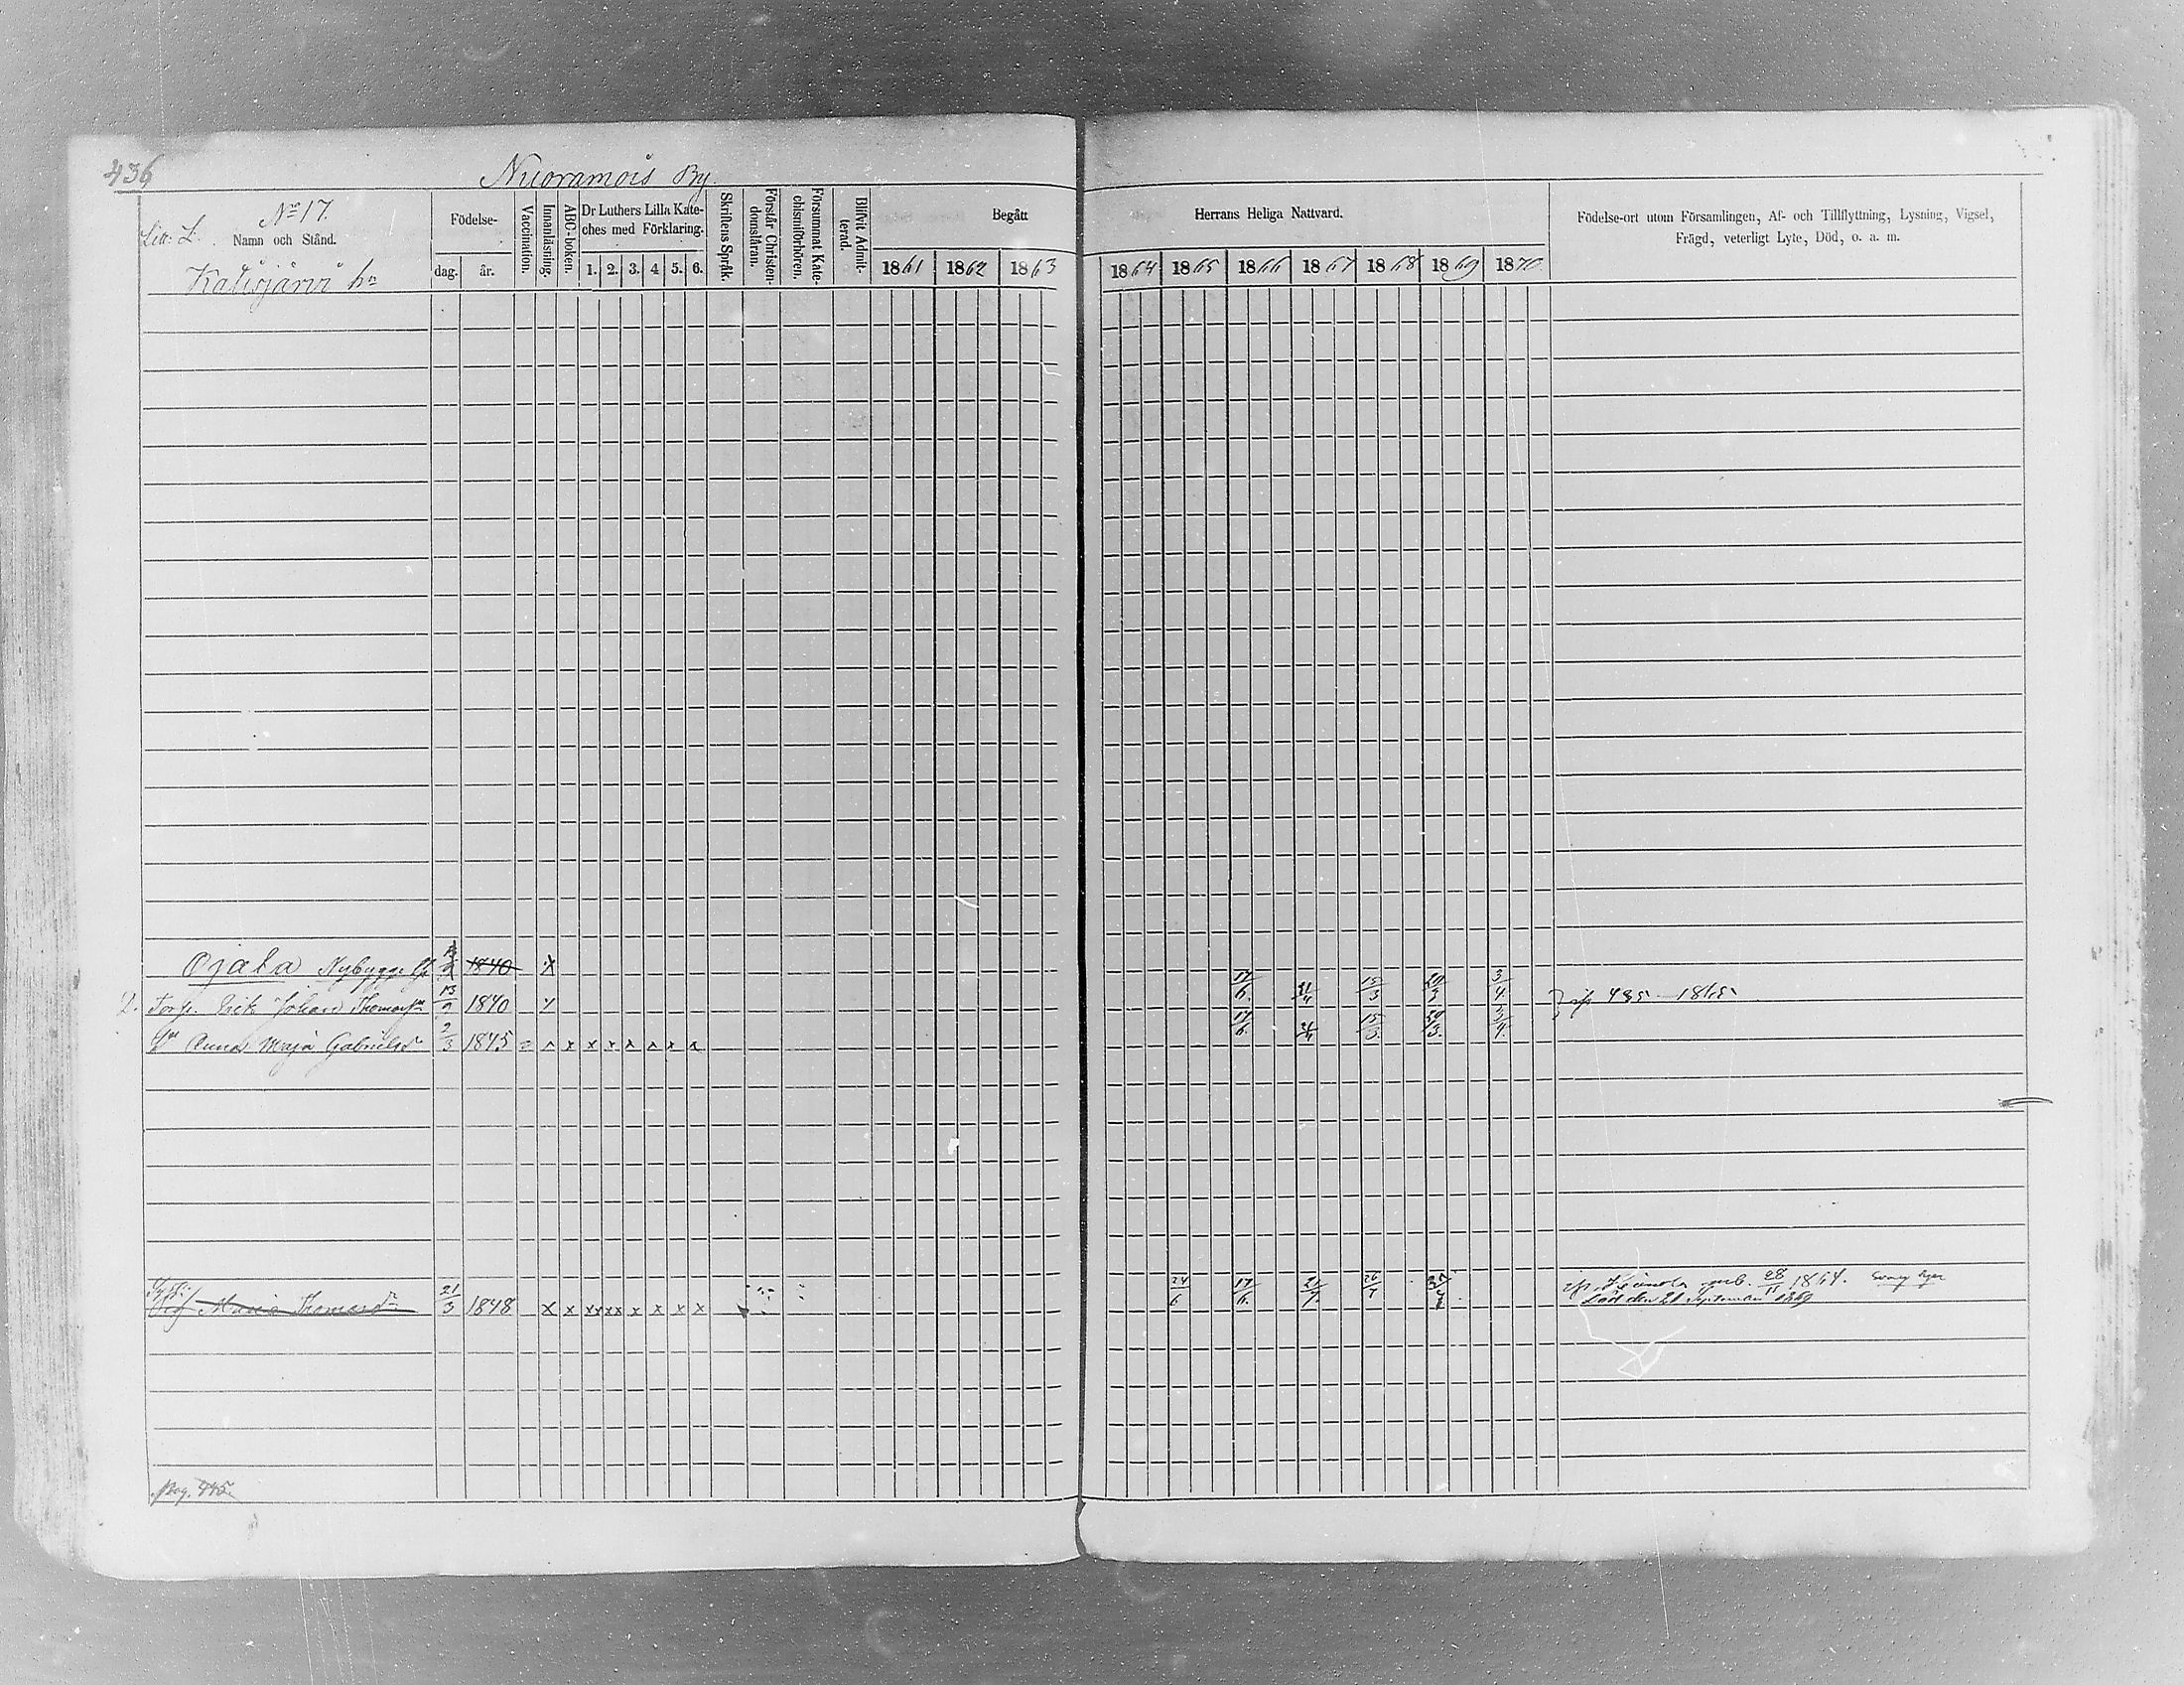 436
Nuoramois By.
No 17.
Litt. L.
Namn och Stånd.
Katisjärvi hn
Födelse-
dag. år.
Vaccination.
Innanläsning.
ABC-boken.
Dr Luthers Lilla Kate-
ches med Förklaring.
1. 2. 3. 4 5. 6.
Skriftens Språk.
Förstår Christen-
domsläran.
Försummat Kate-
chismiförhören.
Blifvit Admit-
terad.
Begått Herrans Heliga Nattvard.
1861 1862 1863 1864 1865 1866 1867 1868 1869 1870
Födelse-ort utom Församlingen, Af- och Tillflyttning, Lysning, Vigsel,
Frägd, veterligt Lyte, Död, o. a. m.
Ojala Nybygge 1840 x
2. Torp. Erik Johan Thomass 13/9 1840 17/6 15/3 3/4 435 1865
Anna Maja Gabrielsdr 2/3 1845 x x x x x x x 17/6 15/3 3/4
Maria Thomasdr 21/3 1848 x x xx xx x x x x 24/6 17/6 28 1864.
död den 21 September 1869
Pag. 445.